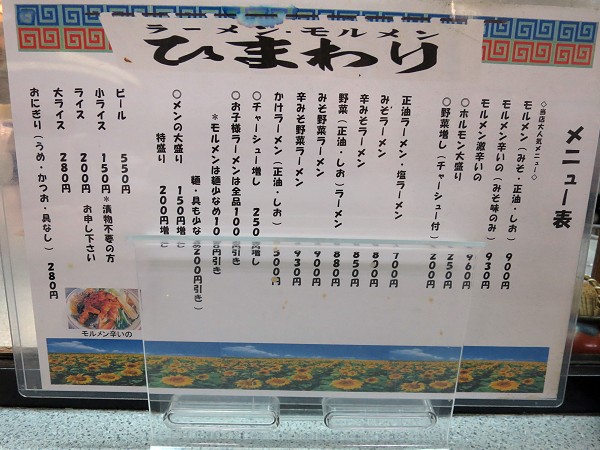 ラーメン・モルメン
ひまわり
メニュー表
◇当店大人気メニュー◇
モルメン（みそ・正油・しお）900円
モルメン辛いの（みそ味のみ）930円
モルメン激辛いの 960円
○ホルモン大盛り 250円
○野菜増し（チャーシュー付）200円
正油ラーメン・塩ラーメン 700円
みそラーメン 800円
辛みそラーメン 850円
野菜（正油・しお）ラーメン 880円
みそ野菜ラーメン 900円
辛みそ野菜ラーメン 930円
かけラーメン（正油・しお）500円
○チャーシュー増し 250円増し
○お子様ラーメンは全品100円引き
＊モルメンは麺少なめ100円引き
麺・具も少な 200円引き）
○メンの大盛り 150円増し
特盛り 200円増し
ビール 550円
小ライス 150円
ライス 200円
大ライス 280円
＊漬物不要の方
お申し下さい
おにぎり（うめ・かつお・具なし）280円
モルメン辛いの